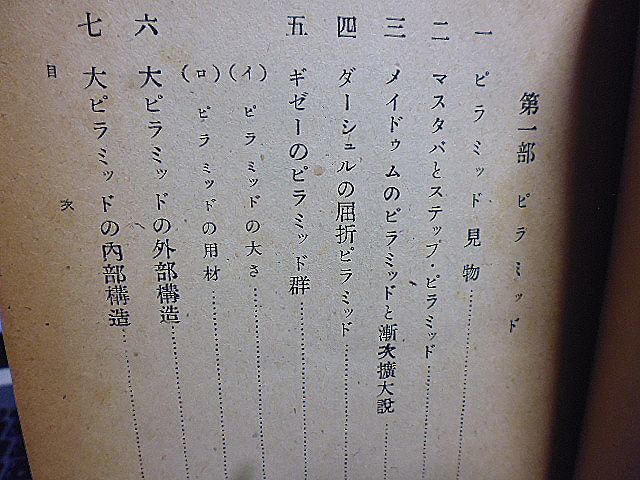 第一部 ピラミッド
一 ピラミッド見物……………
二 マスタバとステップ・ピラミッド……………
三 メイドゥムのピラミッドと漸次擴大說……………
四 ダーシュルの屈折ピラミッド……………
五 ギゼーのピラミッド群……………
(イ) ピラミッドの大さ……………
(ロ) ピラミッドの用材……………
六 大ピラミッドの外部構造……………
七 大ピラミッドの內部構造……………
目次